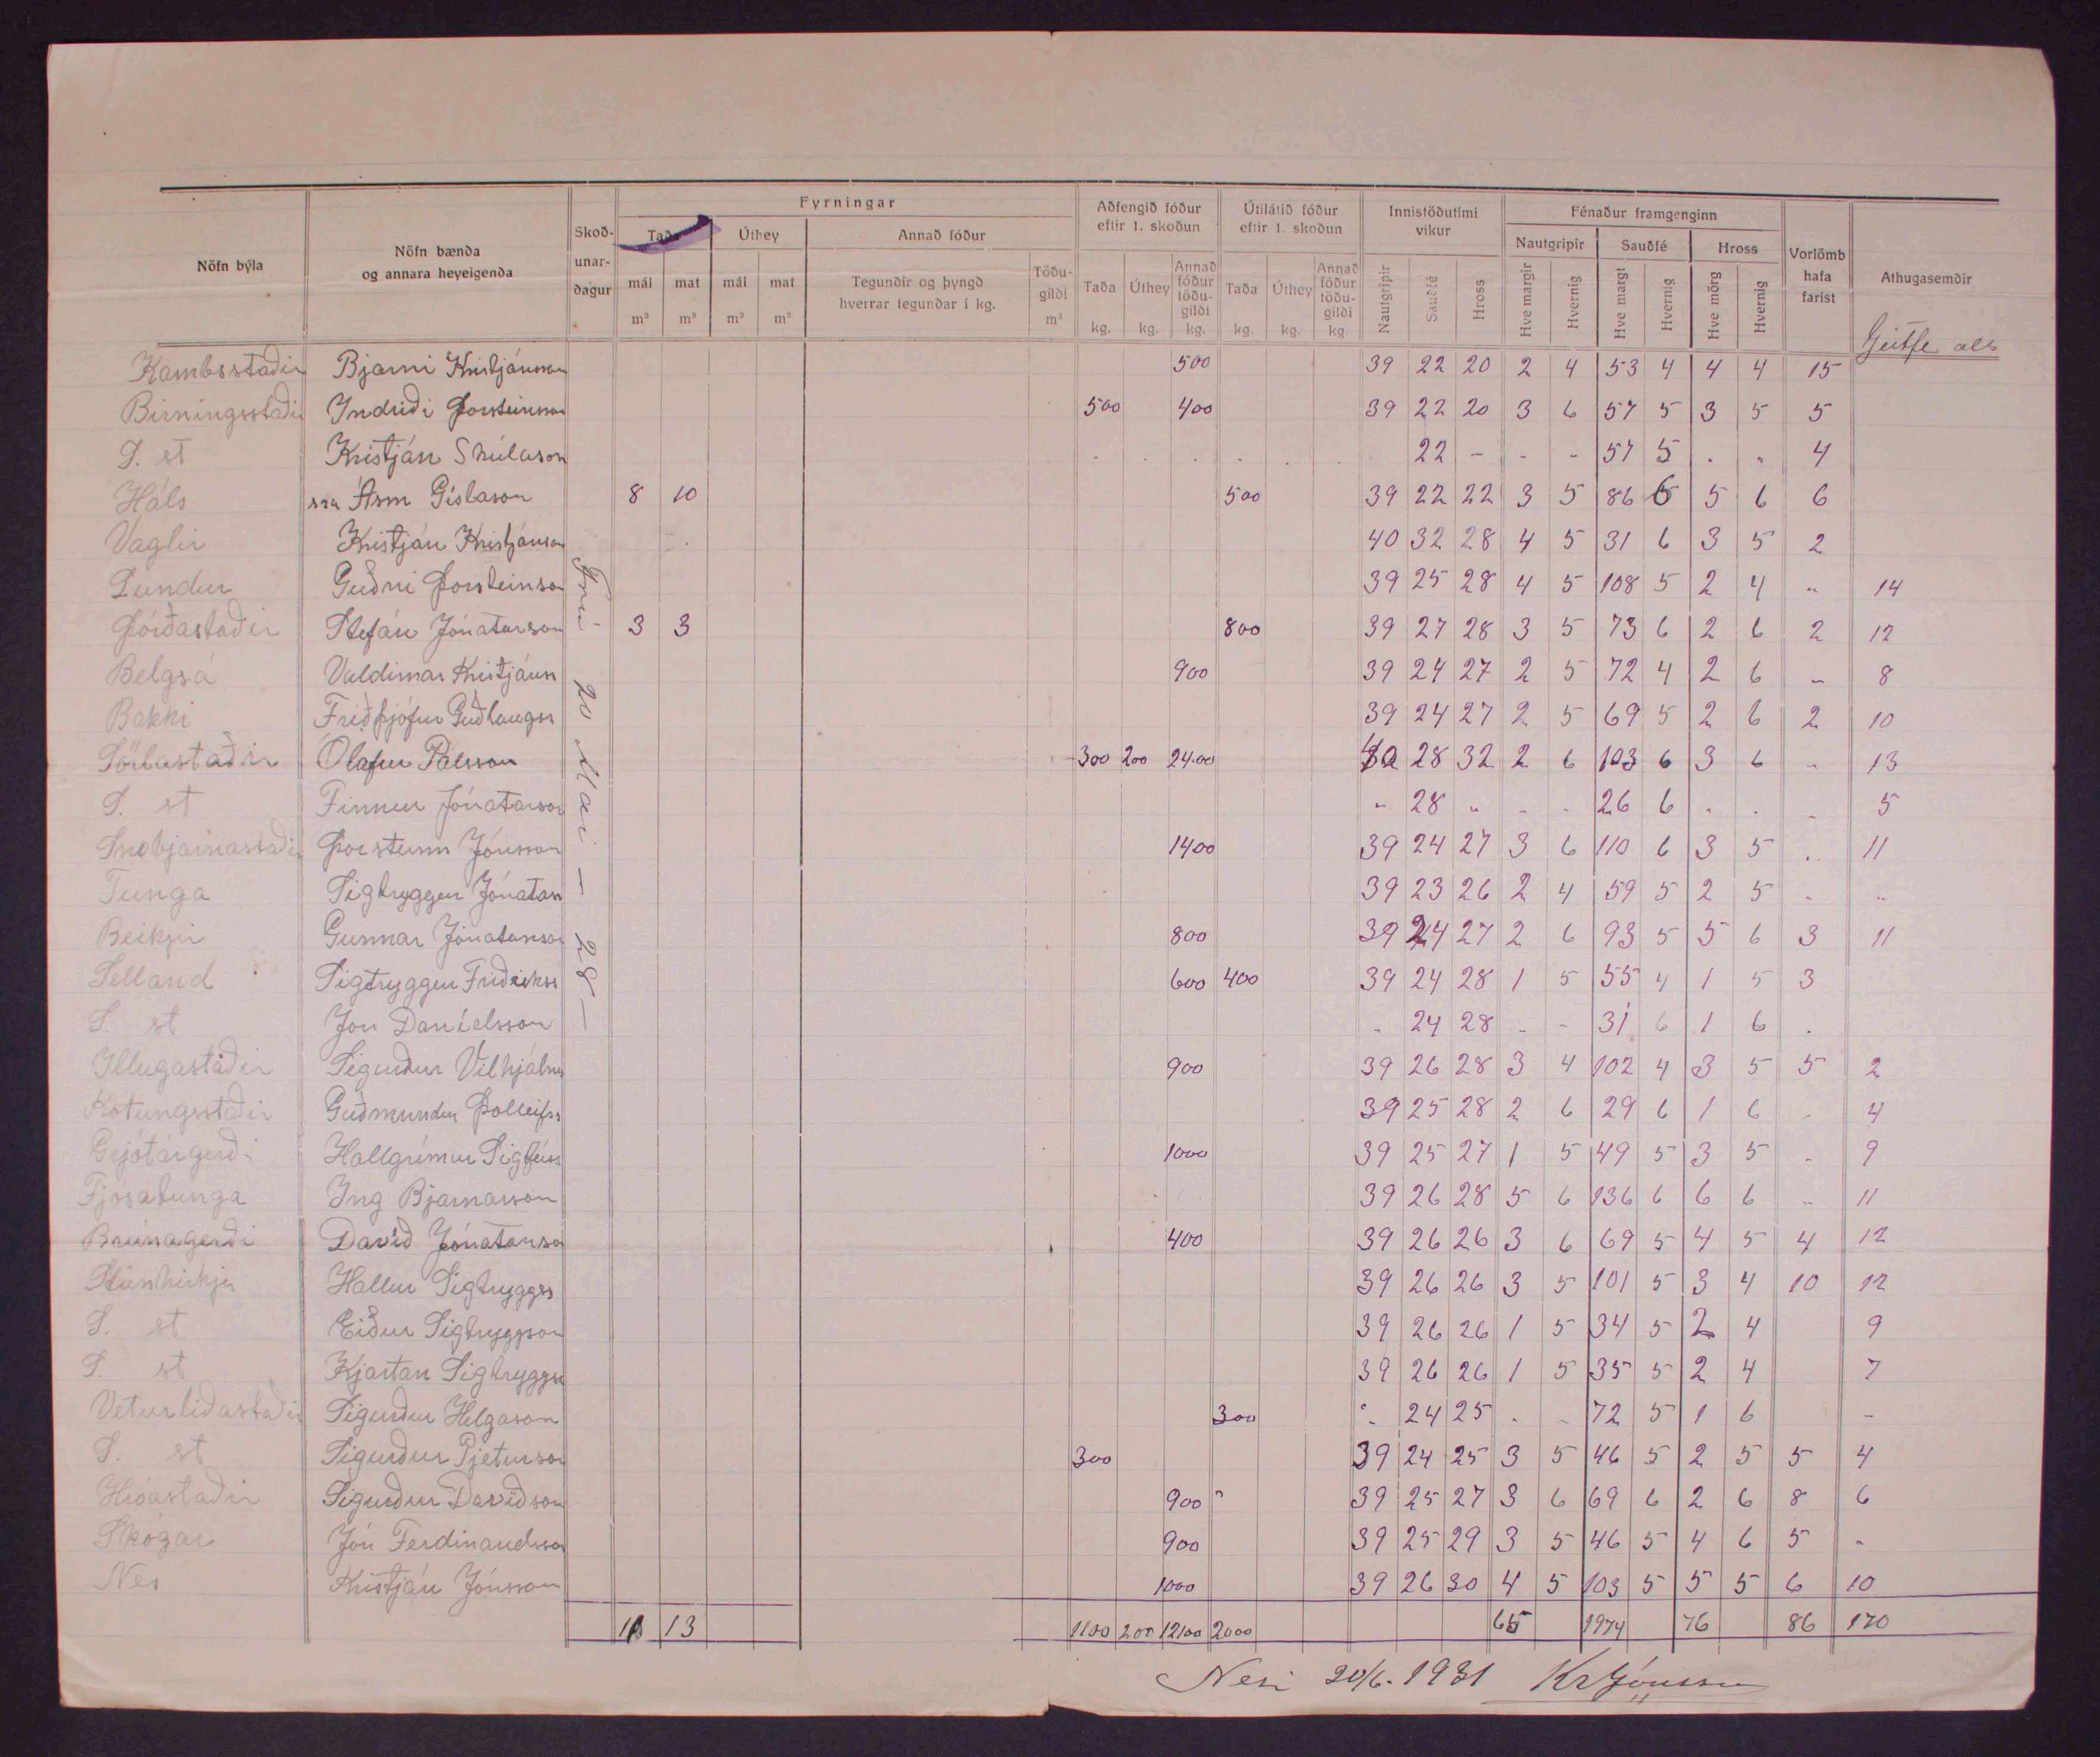 Fyrningar
Aðfengið fóður eftir 1. skoðun
Útilátið fóður eftir 1. skoðun
Innistöðutími vikur
Fénaður framgenginn
Nöfn býla
Nöfn bænda og annara heyeigenda
Skoðunardagur
Taða
Úthey
Annað fóður
Nautgripir
Sauðfé
Hross
Vorlömb hafa farist
Athugasemdir
mál m³
mat m³
mál m³
mat m³
Tegundir og þyngd hverrar tegundar í kg.
Töðugildi m³
Taða kg.
Úthey kg.
Annað fóður töðugildi kg.
Taða kg.
Úthey kg.
Annað fóður töðugildi kg.
Nautgripir
Sauðfé
Hross
Hve margir
Hvernig
Hve margt
Hvernig
Hve mörg
Hvernig
Geitfe alls
Frá 20 Mai – 28 –
Kambsstaðir Bjarni Kristjánsson 500 39 22 20 2 4 53 4 4 4 15
Birningsstaðir Indriði Þorsteinsson 500 400 39 22 20 3 6 57 5 3 5 5
S. st Kristján Skúlason 22 - - - 57 5 . „ 4
Háls sra Ásm Gíslason 8 10 500 39 22 22 3 5 86 6 5 6 6
Vaglir Kristján Kristjánsson 40 32 28 4 5 31 6 3 5 2
Lundur Guðni Þorsteinson 39 25 28 4 5 108 5 2 4 „ 14
Þórðastaðir Stefán Jónatanson 3 3 800 39 27 28 3 5 73 6 2 6 2 12
Belgsá Valdimar Kristjánss 900 39 24 27 2 5 72 4 2 6 „ 8
Bakki Friðþjófur Guðlaugss 39 24 27 2 5 69 5 2 6 2 10
Sörlastaðir Ólafur Pálsson 300 200 24.00 40 28 32 2 6 103 6 3 6 - 13
S. st Finnur Jónatanson „ 28 „ - - 26 6 . . - 5
Snæbjarnastaðir Þorsteinn Jónsson 1400 39 24 27 3 6 110 6 3 5 .. 11
Tunga Sigtryggur Jónatan 39 23 26 2 4 59 5 2 5 - ..
Reikjir Gunnar Jónatanson 800 39 24 27 2 6 93 5 5 6 3 11
Selland Sigtryggur Friðrikss 600 400 39 24 28 1 5 55 4 1 5 3
S. st Jon Daníelsson - 24 28 - - 31 6 1 6 .
Illugastaðir Sigurður Vilhjálms 900 39 26 28 3 4 102 4 3 5 5 2
Kotungsstaðir Guðmundur Þolleifss 39 25 28 2 6 29 6 1 6 - 4
Grjótárgerði Hallgrímur Sigfúss 1000 39 25 27 1 5 49 5 3 5 - 9
Fjósatunga Ing Bjarnarson 39 26 28 5 6 136 6 6 6 - 11
Brúnagerði Davíð Jónatanso 400 39 26 26 3 6 69 5 4 5 4 12
Steinkirkja Hallur Sigtryggss 39 26 26 3 5 101 5 3 4 10 12
S. st Eiður Sigtryggson 39 26 26 1 5 34 5 2 4 9
S. st Kjartan Sigtryggss 39 26 26 1 5 35 5 2 4 7
Veturliðastaðir Sigurður Helgason 300 „ 24 25 . - 72 5 1 6 -
S. st Sigurður Pjeturson 300 39 24 25 3 5 46 5 2 5 5 4
Hróastaðir Sigurður Davíðson 900 39 25 27 3 6 69 6 2 6 8 6
Skógar Jón Ferdinandsson 900 39 25 29 3 5 46 5 4 6 5 -
Nes Kristján Jónsson 1000 39 26 30 4 5 103 5 5 5 6 10
11 13 1100 200 12100 2000 65 1974 76 86 170
Nesi 20/6. 1931 Kr Jónsson